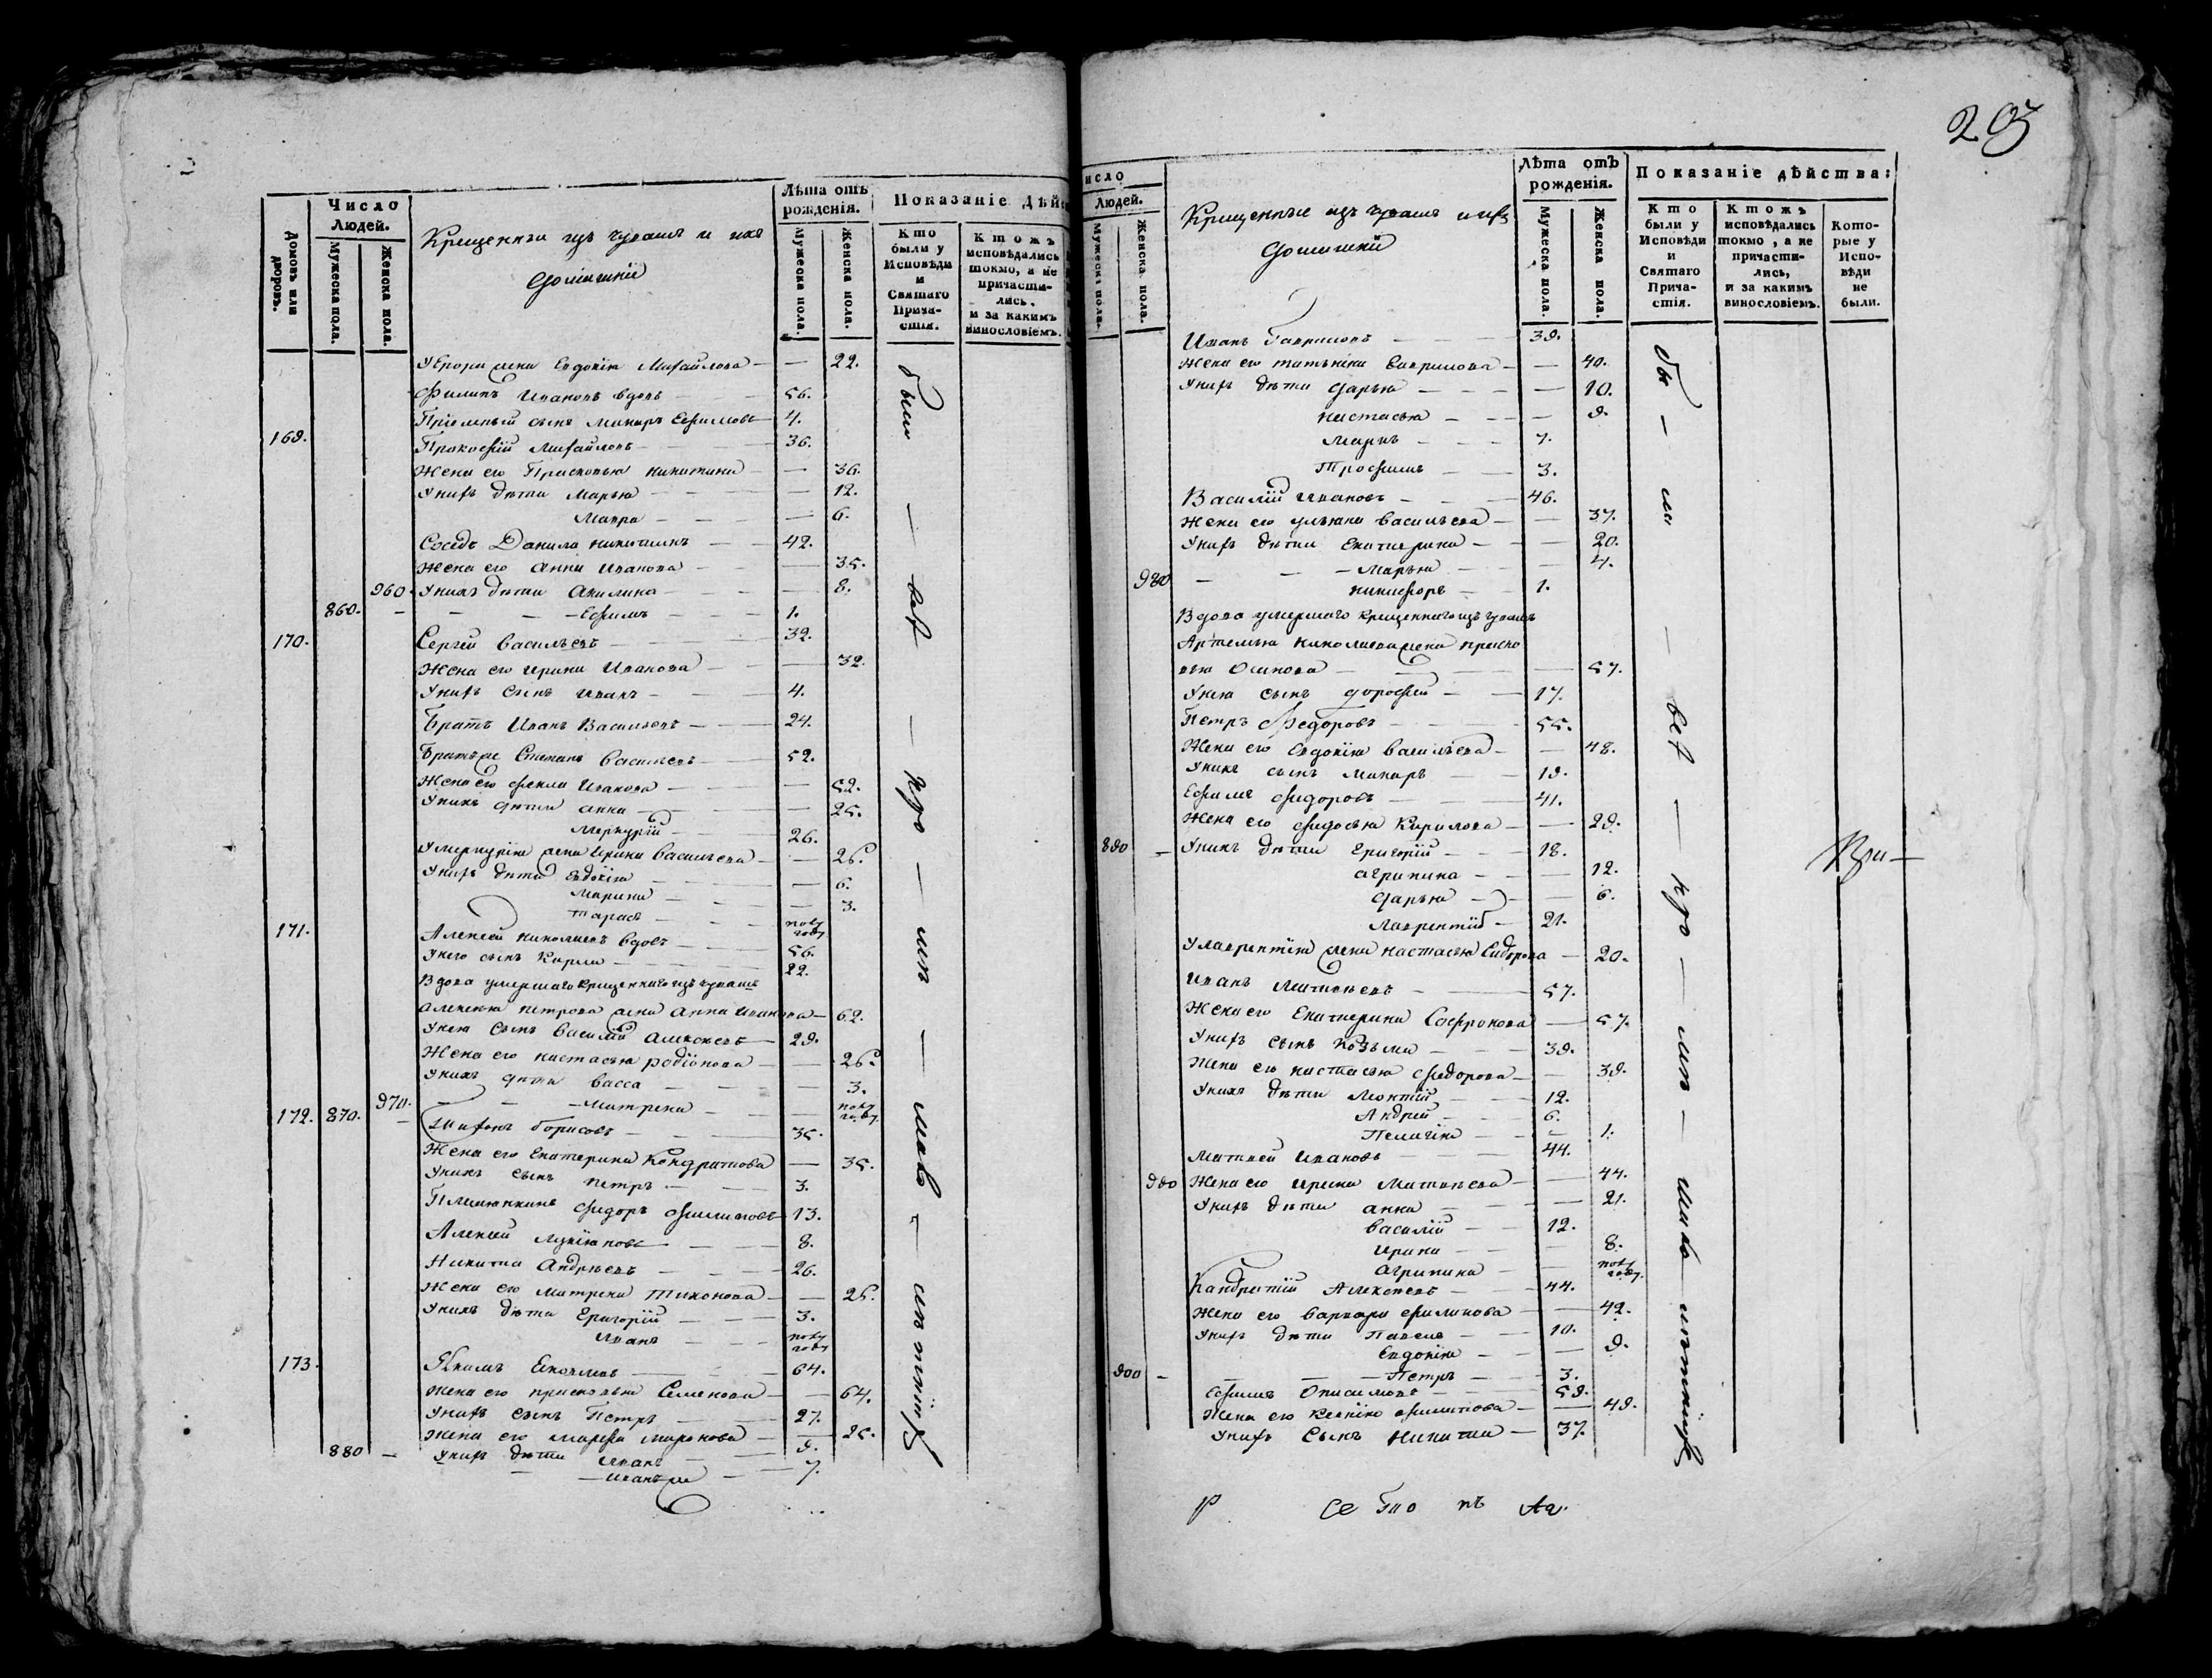 Домовъ или дворовъ.
Число Людей.
Мужеска пола.
Женска пола.
Крещенныи изъ чувашъ и ихъ
домашнїи
Лѣта отъ рожденія.
Мужеска пола.
Женска пола.
Показаніе Дѣй
Кто были у Исповѣди и Святаго Прича-стія.
Ктожъ исповѣдались токмо, а не причасти-лись, и за какимъ винословіемъ.
У жена Евдокїя Михайлова — 22.
Филипъ Ивановъ вдовъ — 56.
Прїемный сынъ Макаръ Ефимовъ 4.
169. Прокофїй Михайловъ — 36.
Жена его Прасковья Никитина — 36.
У нихъ дѣти Марья — 12.
Мавра — 6.
Соседъ Данила Никитинъ — 42.
Жена его Анна Иванова — 35.
960. У нихъ дѣти Акилина — 8.
860. — Ефимъ — 1.
170. Сергей Васильевъ — 32.
Жена его Ирина Иванова — 32.
У нихъ сынъ Иванъ — 4.
Братъ Иванъ Васильевъ — 24.
Братъ же Степанъ Васильевъ — 52.
Жена его Фекла Иванова — 52.
У нихъ дѣти Анна — 25.
Меркурїй — 26.
У Меркурїя жена Ирина Васильева — 26.
У нихъ дѣти Евдокїя — 6.
Марина — 3.
Тарасъ — полу году
171. Алексей Николаевъ вдовъ — 56.
У него сынъ Кирила — 22.
Вдова умершаго крещеннаго изъ чувашъ
Алексея Петрова жена Анна Иванова — 62.
У нея сынъ Василїй Алексеевъ — 29.
Жена его Настасья Родїонова — 26.
У нихъ дѣти Васса — 3.
970. — Матрена — полу году
172. 870. — Тихонъ Борисовъ — 35.
Жена его Екатерина Кондратьева — 35.
У нихъ сынъ Петръ — 3.
Племянникъ Федоръ Филиповъ 13.
Алексей Лукїяновъ — 8.
Никита Андрѣевъ — 26.
Жена его Матрена Тихонова — 26.
У нихъ дѣти Григорїй — 3.
Иванъ — полу году
173. Якимъ — 64.
Жена его Прасковья Семенова — 64.
У нихъ сынъ Петръ — 27.
Жена его Марфа Миронова — 25.
880 — У нихъ дѣти Иванъ — 9.
Иванъ же — 7.
были — всѣ
203
исло
Людей.
Мужеска пола.
Женска пола.
Крещенные изъ чувашъ и ихъ
домашнїи
Лѣта отъ рожденія.
Мужеска пола.
Женска пола.
Показаніе дѣйства:
Кто были у Исповѣди и Святаго Прича-стія.
Ктожъ исповѣдались токмо, а не причасти-лись, и за какимъ винословіемъ.
Кото-рые у Испо-вѣди не были.
Иванъ Гавриловъ — 39.
Жена его Татьяна Гаврилова — 40.
У нихъ дѣти Дарья — 10.
Настасья — 9.
Маркъ — 7.
Трофимъ — 3.
Василїй Ивановъ — 46.
Жена его Ульяна Васильева — 37.
У нихъ дѣти Екатерина — 20.
Марья — 4.
980 — Никифоръ — 1.
Вдова умершаго крещеннаго изъ чувашъ
Артемья Николаева жена Праско
вья Осипова — 57.
У нея сынъ Дорофей — 17.
Петръ Федоровъ — 55.
Жена его Евдокїя Васильева — 48.
У нихъ сынъ Макаръ — 19.
Ефимъ Федоровъ — 41.
Жена его Федосья Кирилова — 29.
890 — У нихъ дѣти Григорїй — 18.
Агрипина — 12.
Дарья — 6.
Лаврентїй — 21.
У Лаврентїя жена Настасья Сидорова — 20.
Иванъ Матвѣевъ — 57.
Жена его Екатерина Софронова — 57.
У нихъ сынъ Козьма — 39.
Жена его Настасья Федорова — 39.
У нихъ дѣти Леонтїй — 12.
Андрей — 6.
Пелагїя — 1.
Матвей Ивановъ — 44.
990 Жена его Ирина Матвѣева — 44.
У нихъ дѣти Анна — 21.
Василїй — 12.
Ирина — 8.
Агрипина — полу году.
Кандратїй Алексеевъ — 44.
Жена его Варвара Филипова — 42.
У нихъ дѣти Павелъ — 10.
Евдокїя — 9.
900 — Петръ — 3.
Ефимъ Онисимовъ — 59.
Жена его Ксенїя Филипова — 49.
У нихъ сынъ Никита — 37.
бы — ли — всѣ